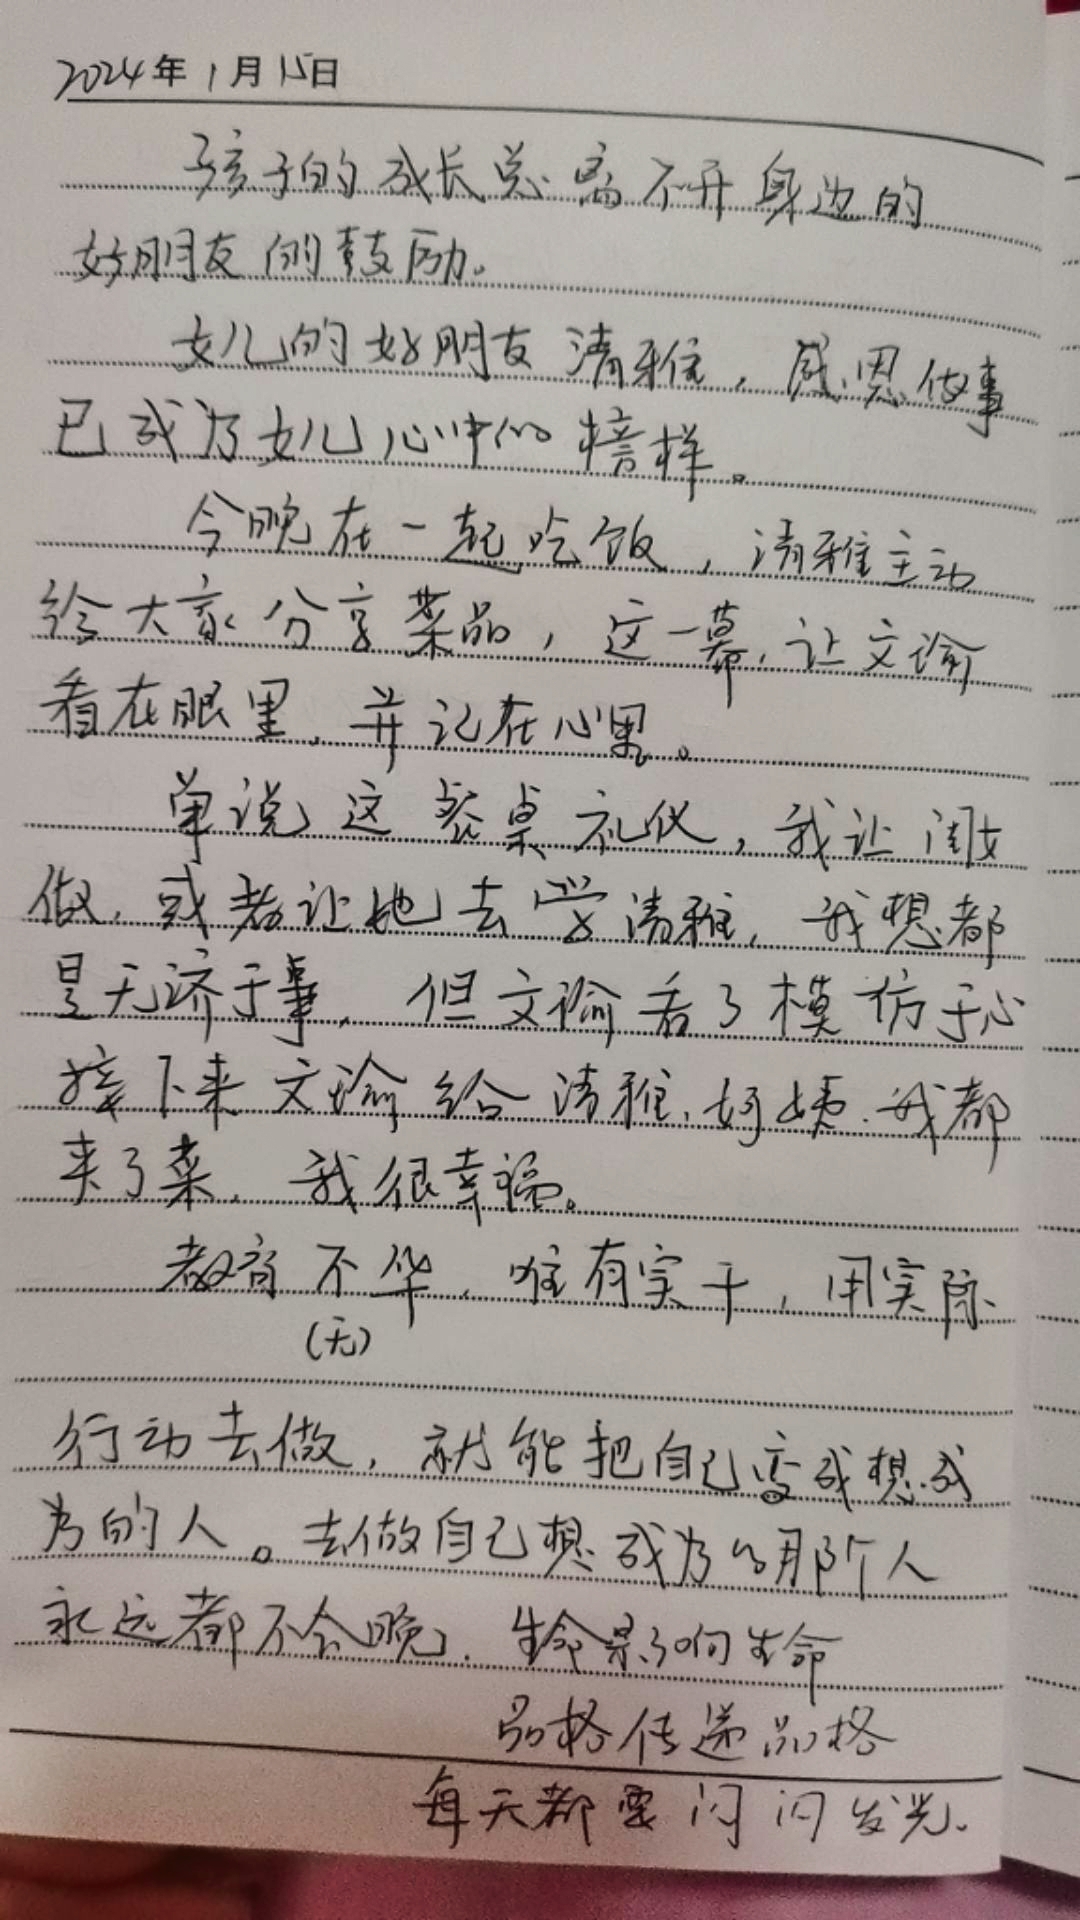 2024年1月15日
孩子的成长总离不开身边的
好朋友的鼓励。
女儿的好朋友清雅，感恩做事
已成为女儿心中的榜样。
今晚在一起吃饭，清雅主动
给大家分享菜品，这一幕，让文瑜
看在眼里，并记在心里。
单说这餐桌礼仪，我让闺女
做，或者让她去学清雅，我想都
是无济于事，但文瑜看了模仿于心
接下来文瑜给清雅、好姨、我都
夹了菜，我很幸福。
教育不华，唯有实干，用实际
(无)
行动去做，就能把自己变成想成
为的人。去做自己想成为的那个人
永远都不会晚，生命影响生命
品格传递品格
每天都要闪闪发光。